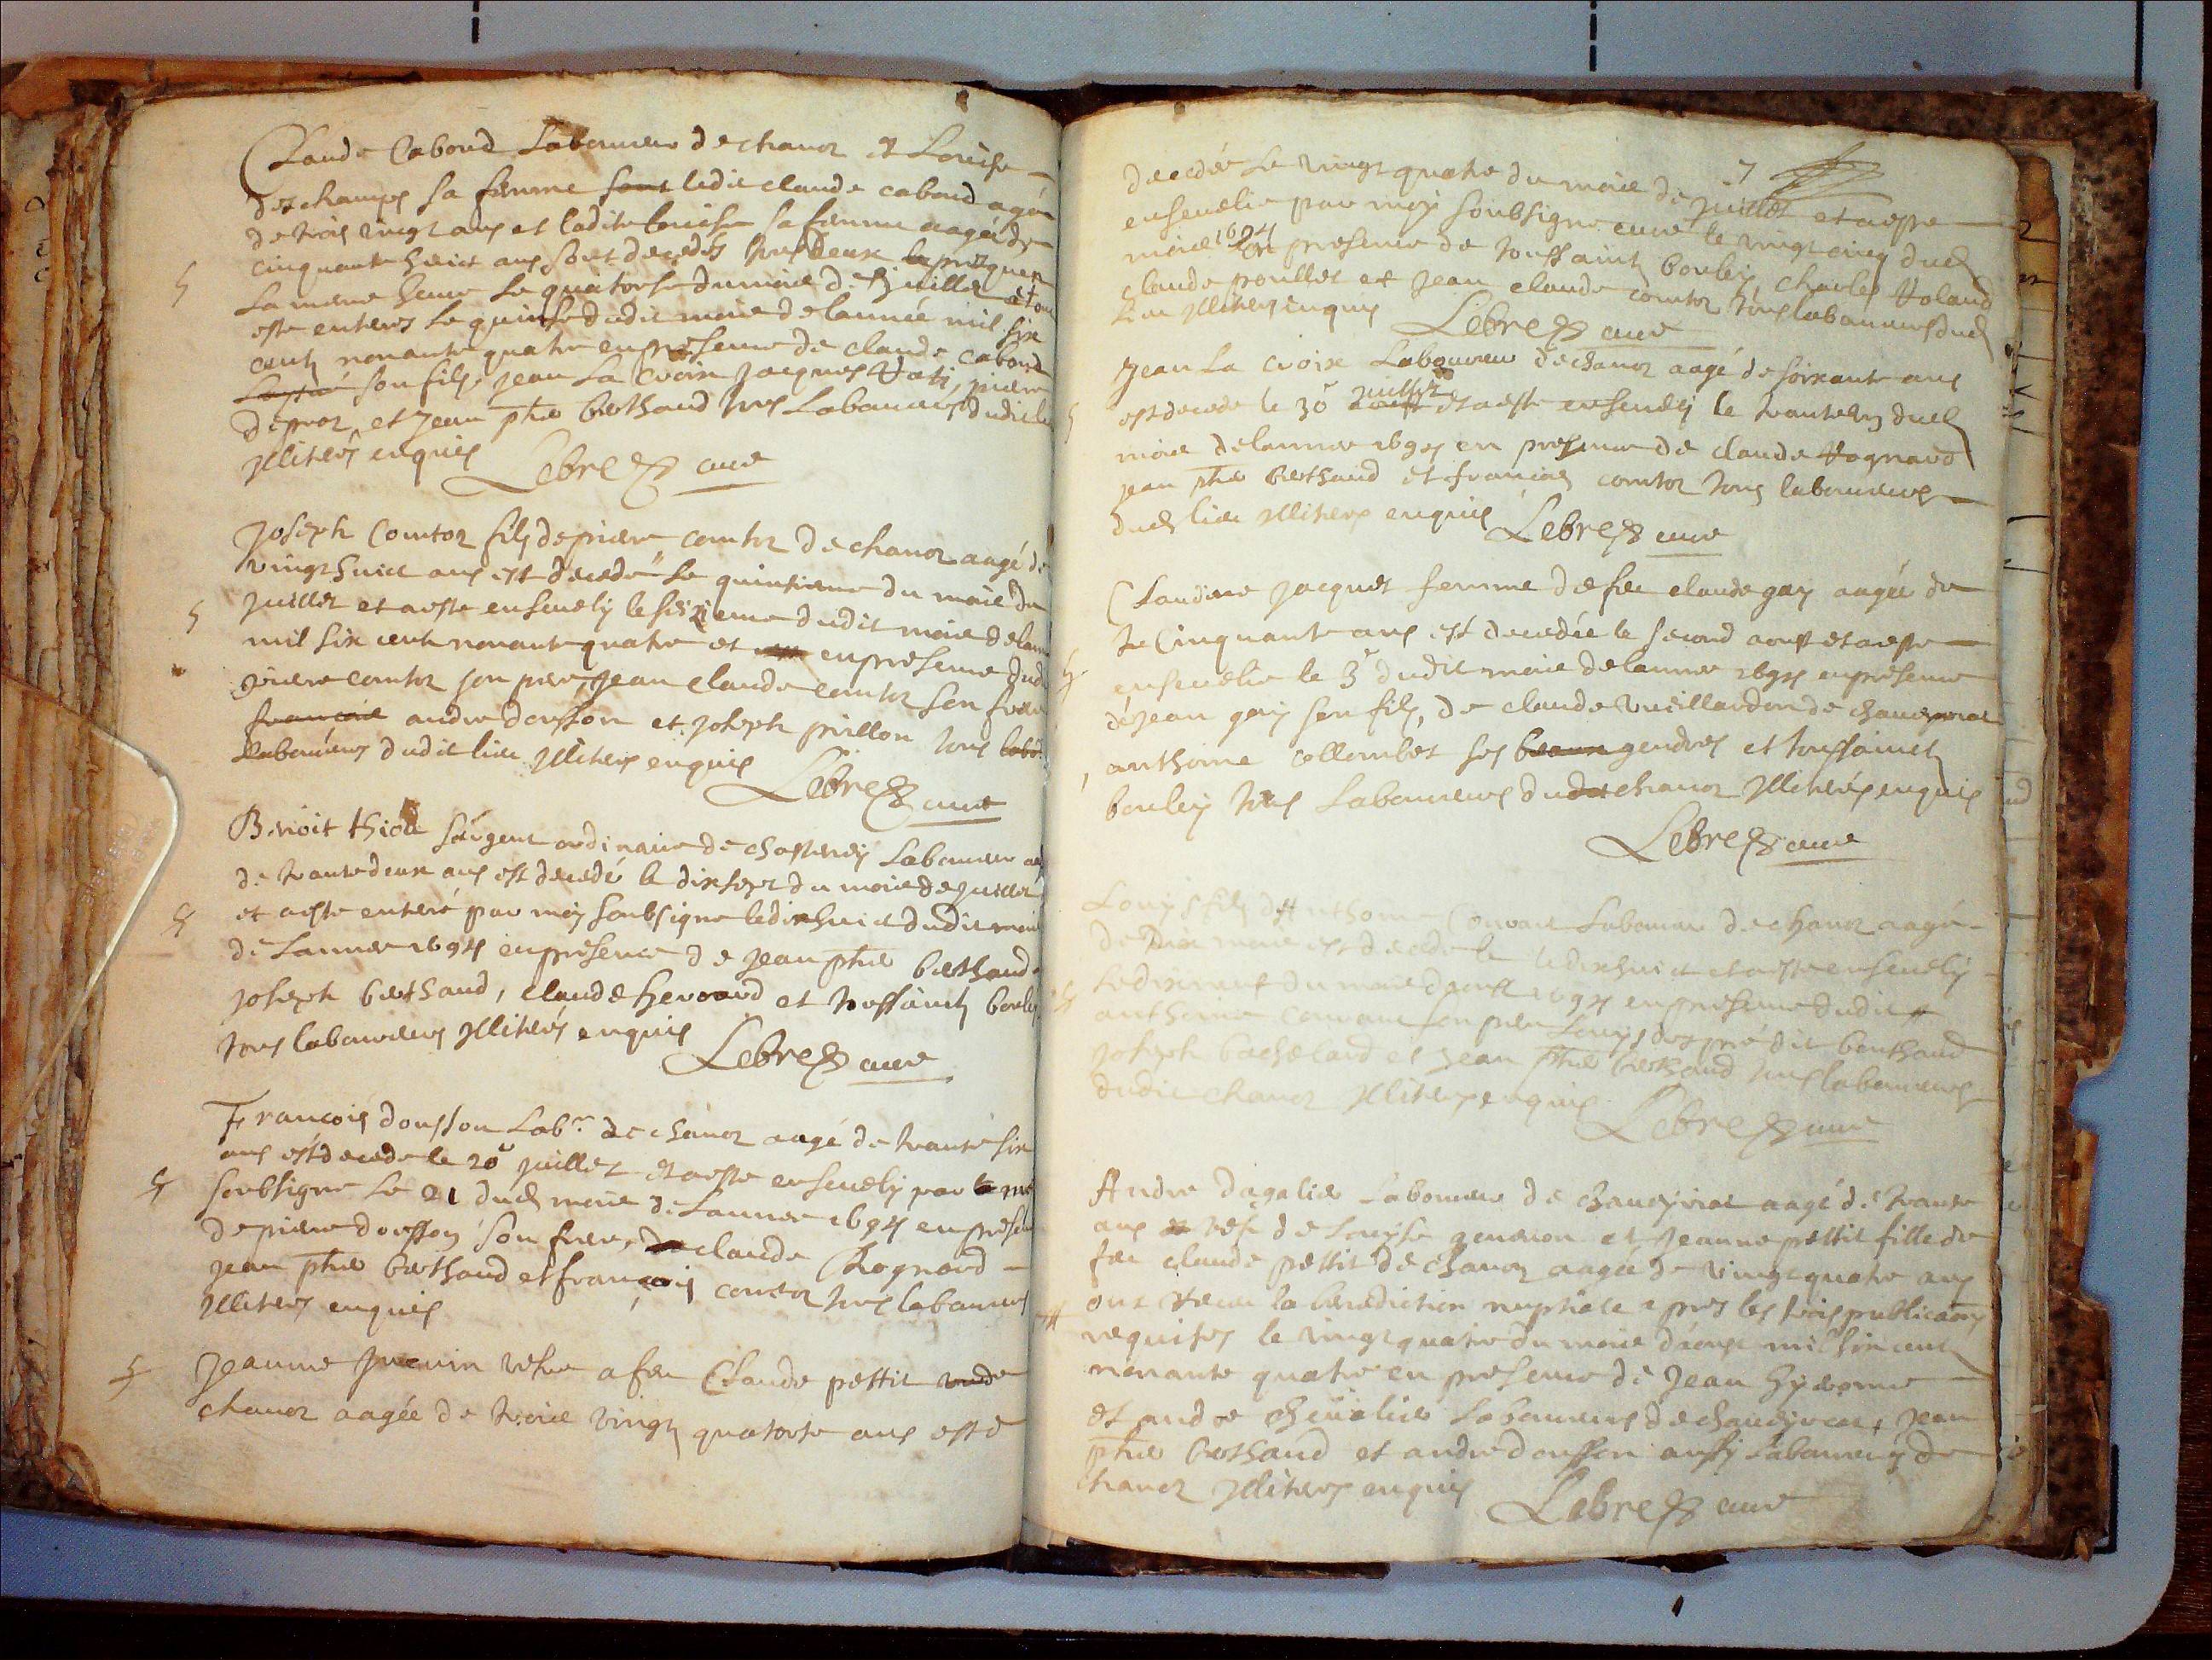 Claude Cabond Laboureur de chanoz et Louise
deschamps sa femme ledit claude cabond agé
de trois vingt ans et ladite louise sa femme aagée de
cinquante huict ans sont decedés tous deux presque en
la mesme heure le quatorse du mois de Juillet et ont
esté enterés le quinse dudit mois de lannée mil six
cent nonante quatre en presence de claude cabond
son fils Jean La croix Jacques piere
et Jean phe berthaud tous Laboureurs dudit lieu
Illiterés enquis
Lebre curé
Joseph Comtoz fils de piere comtoz de chanoz aagé de
vingt huict ans est decedé le quinsieme du mois de
Juillet et a esté ensevely le seizieme dudit mois de lannée
mil six cent nonante quatre et en presence dudit
piere comtoz son pere, Jean claude comtoz son frere
francois andre donsson et Joseph pirllon tous
laboureurs dudit lieu Illiterés enquis
Lebre curé
Benoit sergent ordinaire de chasteney Laboureur aagé
de trante deux ans est decedé le dix sept du mois de Juillet
et a esté enteré par moy soubsigne le dix huict dudit mois
de Lannee 1694 en presence de Jean phe berthaud
Joseph berthaud, claude et toussainct bouley
tous laboureurs Illiterés enquis
Lebre curé
Francois donsson Labr de chanoz aagé de trante six
ans est decede le 20e Juillet et a esté ensevely par moy
soubsigne le 21 dud mois de Lannee 1694 en presence
de piere donsson son frere, claude Rognard
Jean phe berthaud et francois comtoz tous laboureurs
Illiterés enquis
Jeanne vefve a feu Claude pettit de
chanoz aagée de trois vingt quatorse ans est
7
decedée le vingt quatre du mois de Juillet et a esté
ensevelie par moy soubsigne curé le vingt cinq dud
mois 1694 en presence de toussainct bouley, charles Roland
claude poullet et Jean claude comtoz tous laboureurs dud
lieu Illiterés enquis
Lebre curé
Jean La croix Laboureur de chanoz aagé de soixante ans
est decede le 30e Juillet et a esté ensevely le trante un dud
mois de lannee 1694 en presence de claude Rognard
Jean phe berthaud et francois comtoz tous laboureurs
dud lieu Illiterés enquis
Lebre curé
Claudine Jacquet femme de feu claude gay aagée de
cinquante ans est decedée le second aoust et a esté
ensevelie le 3e dudit mois de lannee 1694 en presence
de Jean gay son fils, de claude vuillardon de
anthoine collombet ses gendres et toussainct
bouley tous Laboureurs dudit chanoz Illiterés enquis
Lebre curé
Louys fils d'Anthoine Convert Laboureur de chanoz aagé
de dix mois est decede le dix huict et a esté ensevely
le dix neuf du mois d'aoust 1694 en presence dudit
anthoine convert son pere Louys
Joseph bachelard et Jean phe berthaud tous laboureurs
dudit chanoz Illiterés enquis
Lebre curé
Andre dagalier Laboureur de aagé de trante
ans vefs de Louyse et Jeanne pettit fille de
feu claude pettit de chanoz aagée de vingt quatre ans
ont receu la benediction nuptiale apres les trois publications
requises le vingt quatre du mois d'aoust mil six cent
nonante quatre en presence de Jean
et andre chevalier Laboureurs de Jean
phe berthaud et andre donsson aussy Laboureurs de
chanoz Illiterés enquis
Lebre curé